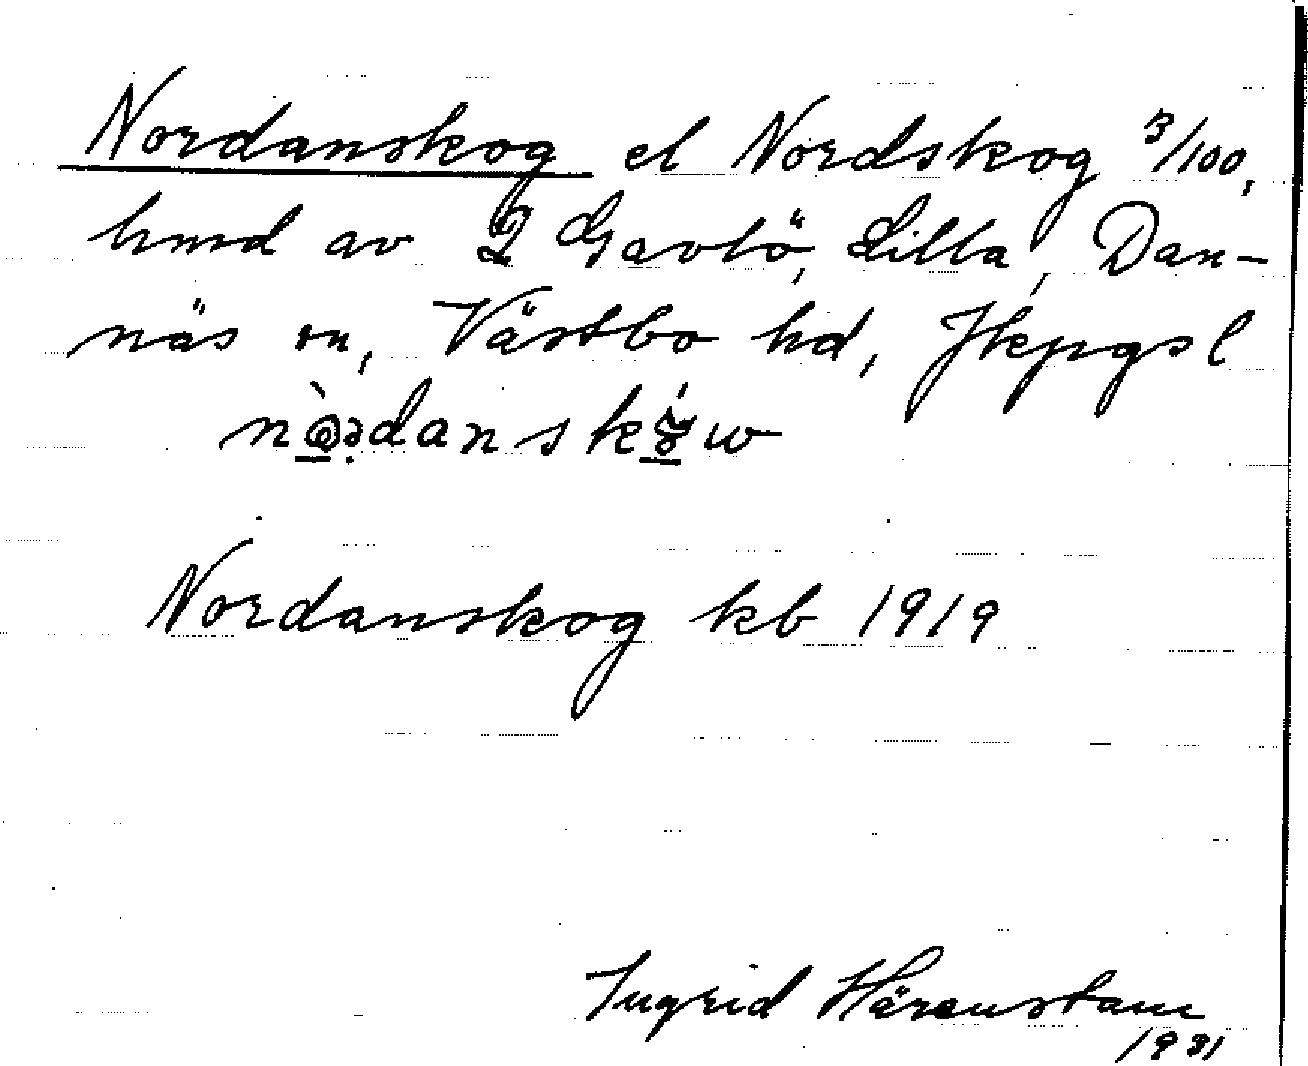 Nordanskog el Nordskog 3/100,
hmd av 2 Gavlö, Lilla, Dan-
näs sn, Västbo hd, Jkpgs l
Nordanskog kb 1919
Ingrid Härenstam
1931